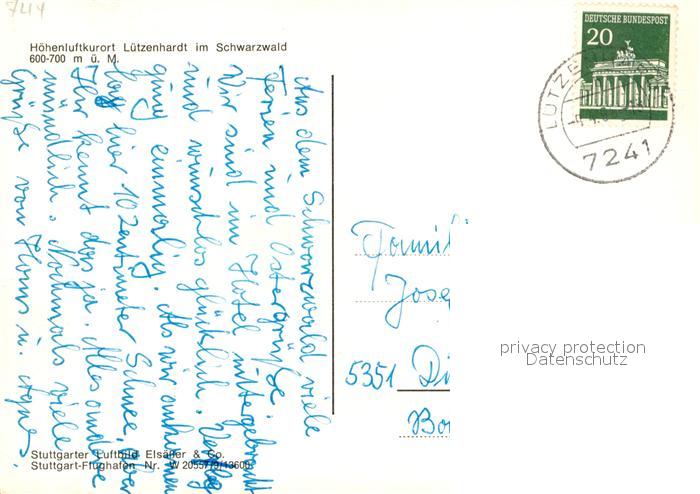 7241
Höhenluftkurort Lützenhardt im Schwarzwald
600-700 m ü. M.
DEUTSCHE BUNDESPOST
20
LÜTZENHARDT
7241
Aus dem Schwarzwald viele
Ferien und Ostergrüße.
Wir sind im Hotel untergebracht
und wunschlos glücklich.
ging einmalig. Als wir ankamen
lag hier 10 Zentimeter Schnee. Aber
Ihr kennt das ja. Alles andere
mündlich. Nochmals viele
Grüße von Hans u.
Famil
Jose
5351 Di
Bo
privacy protection
Datenschutz
Stuttgarter Luftbild Elsäßer & Co.
Stuttgart-Flughafen Nr. W 2055/79/13606